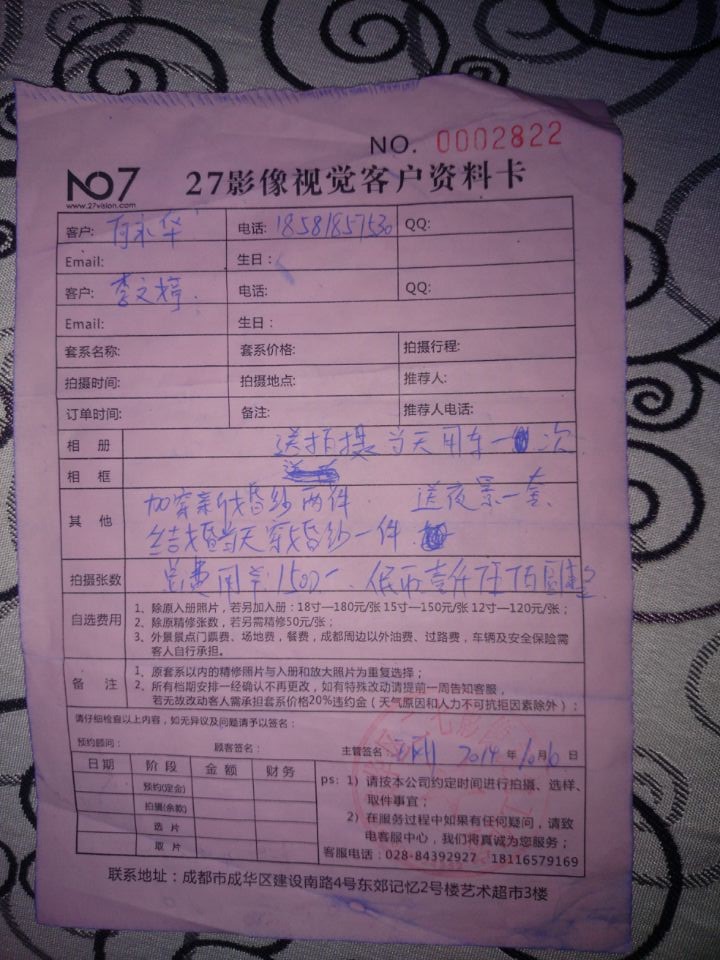 NO. 0002822
NO7 27影像视觉客户资料卡
www.27vision.com
客户: 何永华 电话: 18581857530 QQ:
Email: 生日:
客户: 李文婷 电话: QQ:
Email: 生日:
套系名称: 套系价格: 拍摄行程:
拍摄时间: 拍摄地点: 推荐人:
订单时间: 备注: 推荐人电话:
相 册 送拍摄当天用车一次
相 框
其 他 加穿新线婚纱两件 送夜景一套
结婚当天穿婚纱一件
拍摄张数 总费用 1500
自选费用 1、除原入册照片，若另加入册：18寸—180元/张 15寸—150元/张 12寸—120元/张；
2、除原精修张数，若另需精修50元/张；
3、外景景点门票费、场地费，餐费，成都周边以外油费、过路费，车辆及安全保险需
客人自行承担。
备 注 1、原套系以内的精修照片与入册和放大照片为重复选择；
2、所有档期安排一经确认不再更改，如有特殊改动请提前一周告知客服，
若无故改动客人需承担套系价格20%违约金（天气原因和人力不可抗拒因素除外）；
请仔细检查以上内容，如无异议及问题请予以签名：
预约顾问： 顾客签名： 主管签名： 2014 年 10 月 6 日
日 期 阶 段 金 额 财 务
预约(定金)
拍摄(余款)
选 片
取 片
ps: 1）请按本公司约定时间进行拍摄、选样、
取件事宜；
2）在服务过程中如果有任何疑问，请致
电客服中心，我们将真诚为您服务；
客服电话：028-84392927 18116579169
联系地址：成都市成华区建设南路4号东郊记忆2号楼艺术超市3楼